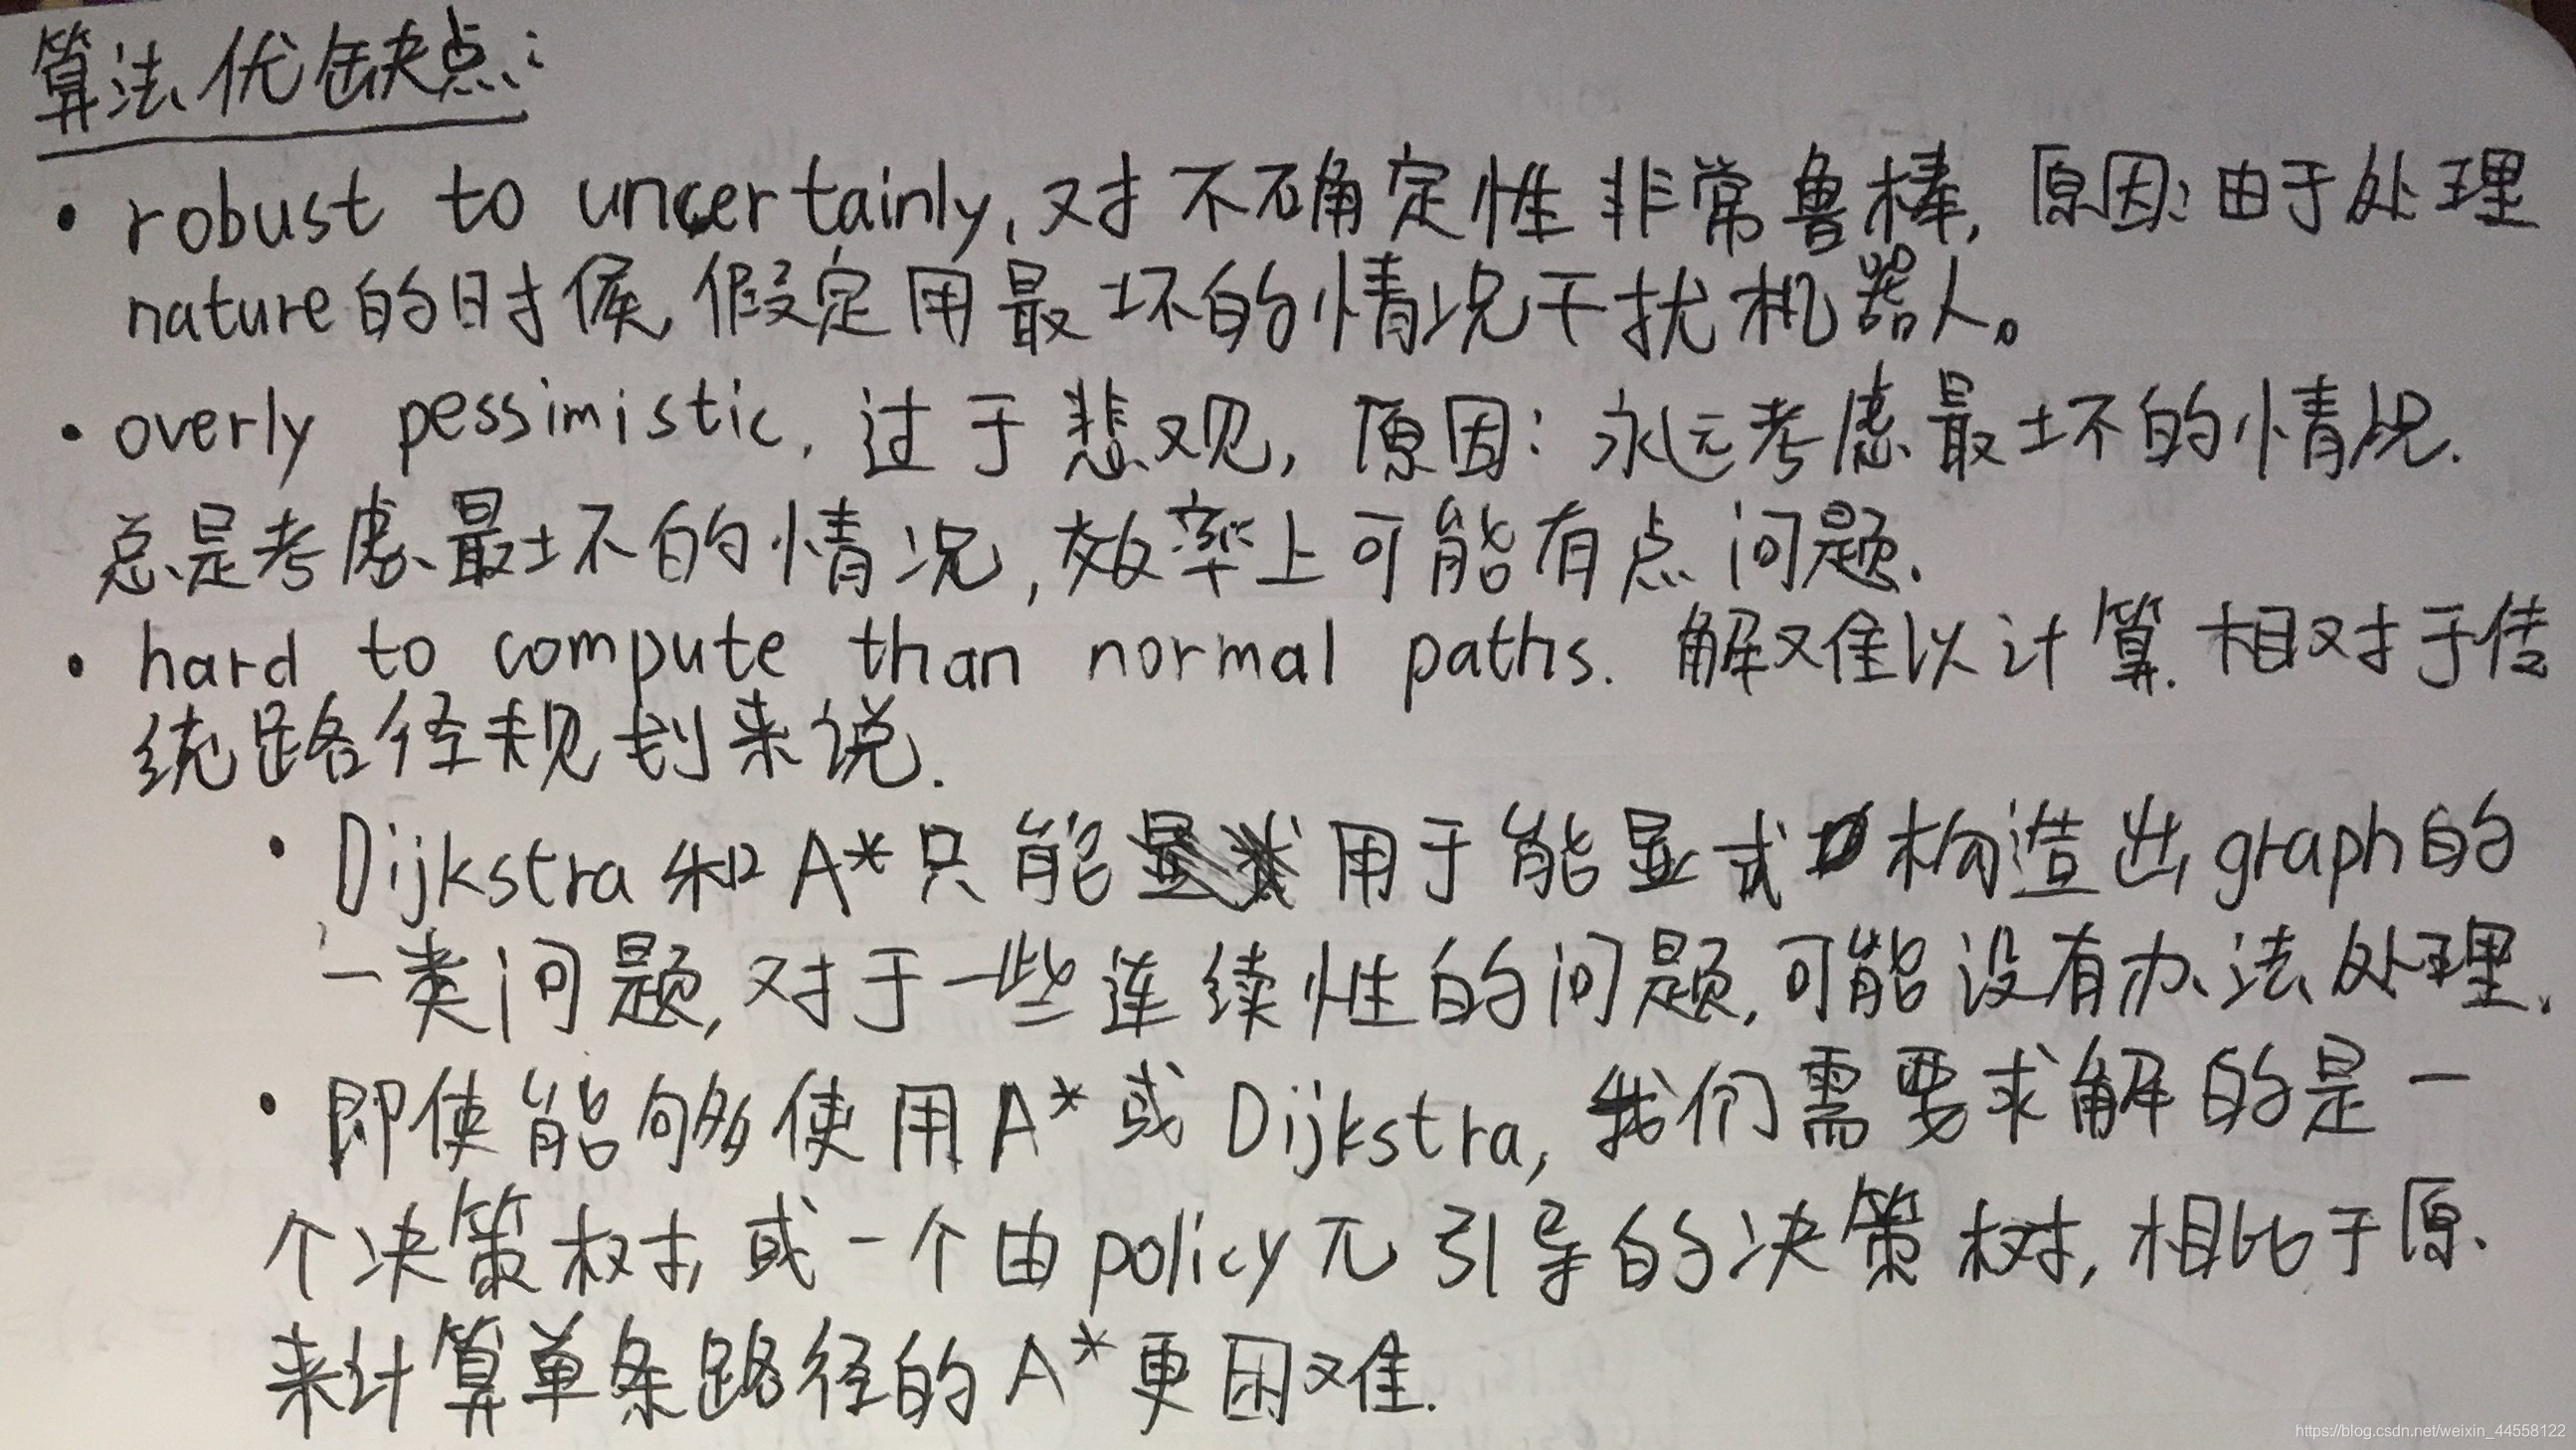 算法优缺点:
• robust to uncertainly, 对不确定性非常鲁棒, 原因: 由于处理
nature的时候, 假定用最坏的情况干扰机器人。
• overly pessimistic, 过于悲观, 原因: 永远考虑最坏的情况.
总是考虑最坏的情况, 效率上可能有点问题.
• hard to compute than normal paths. 解难以计算. 相对于传
统路径规划来说.
• Dijkstra和A*只能用于能显式构造出graph的
一类问题, 对于一些连续性的问题, 可能没有办法处理.
• 即使能够使用A*或Dijkstra, 我们需要求解的是一
个决策树, 或一个由policy π引导的决策树, 相比于原
来计算单条路径的A*更困难.
https://blog.csdn.net/weixin_44558122